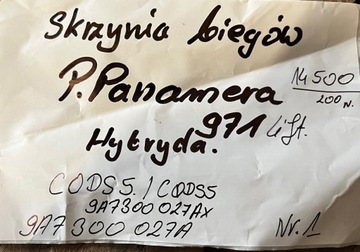 Skrzynia biegów
P. Panamera
14 500
200 N.
971 lift.
Hybryda.
CODS5. / CQDS5
9A7300027AX
9A7300027A
Nr. 1